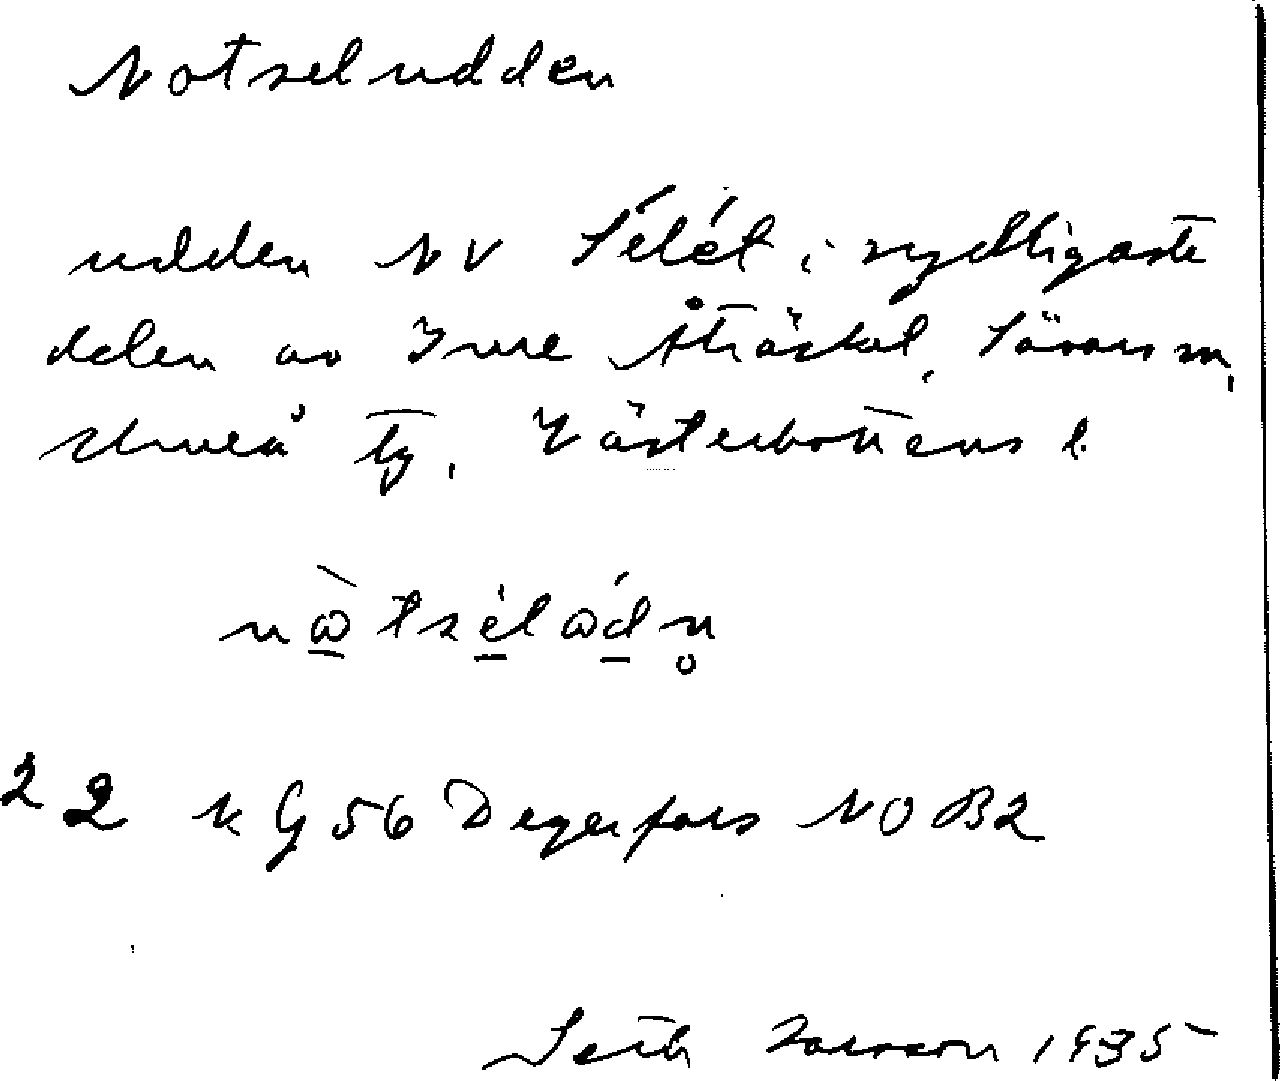 Notseludden
udden NV Selet i sydligaste
delen av Inre Åträsket, Sävars sn,
Umeå tg, Västerbottens l.
22 K G 56 Degerfors NO B2
Seth Larsson 1935